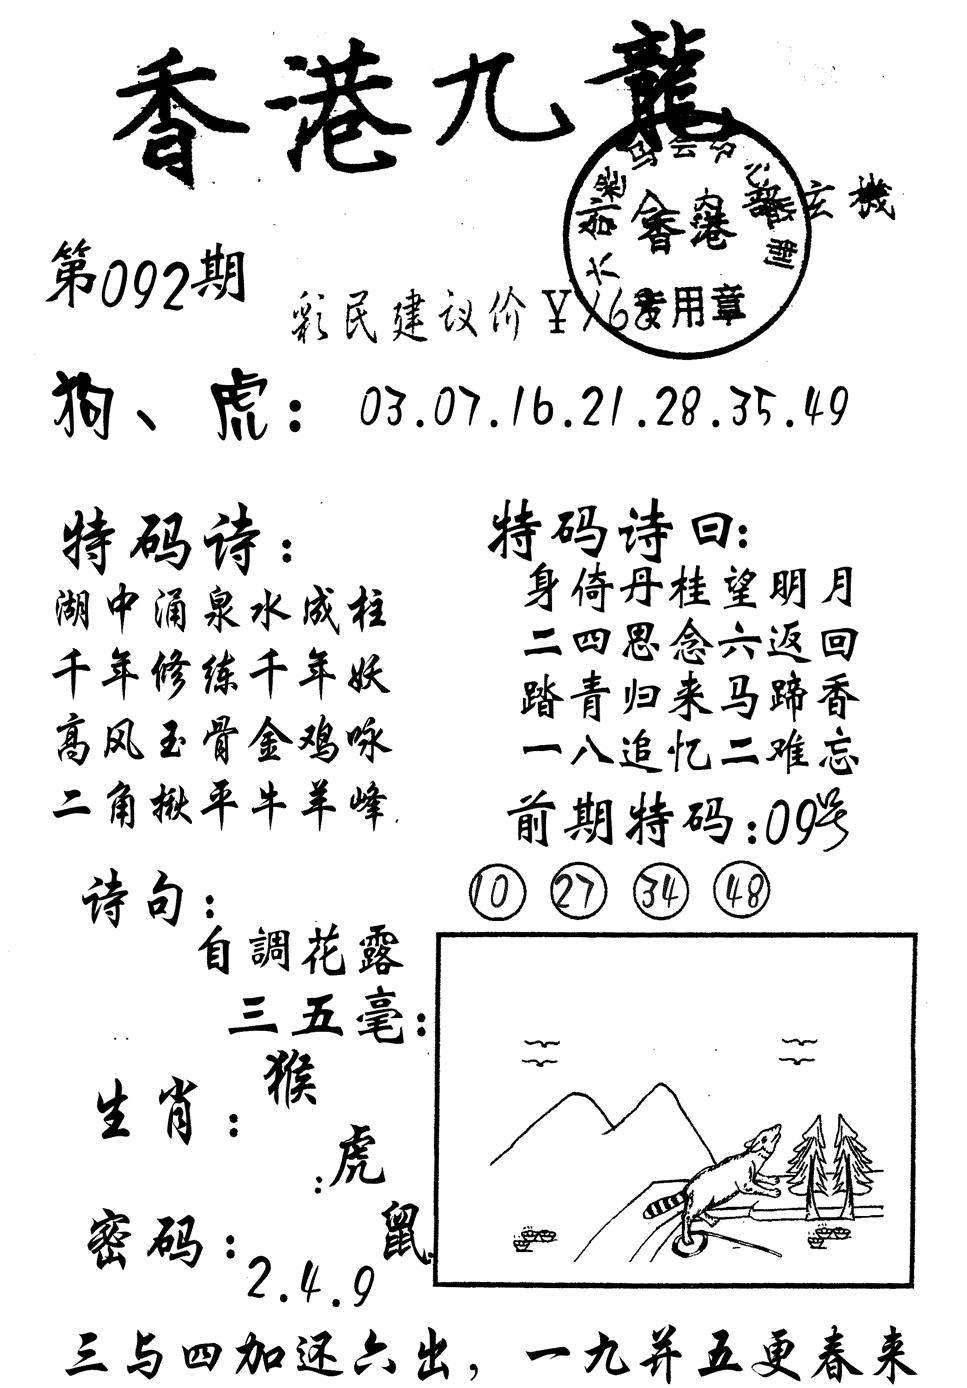 香港九龍
玄機
香港
专用章
第092期
彩民建议价￥168
狗、虎：03.07.16.21.28.35.49
特码诗：
湖中涌泉水成柱
千年修练千年妖
高风玉骨金鸡咏
二角揪平牛羊峰
特码诗曰:
身倚丹桂望明月
二四思念六返回
踏青归来马蹄香
一八追忆二难忘
前期特码:09号
10 27 34 48
诗句:
自調花露
三五毫:
生肖:
猴
:虎
鼠
密码:
2.4.9
三与四加还六出，一九并五更春来